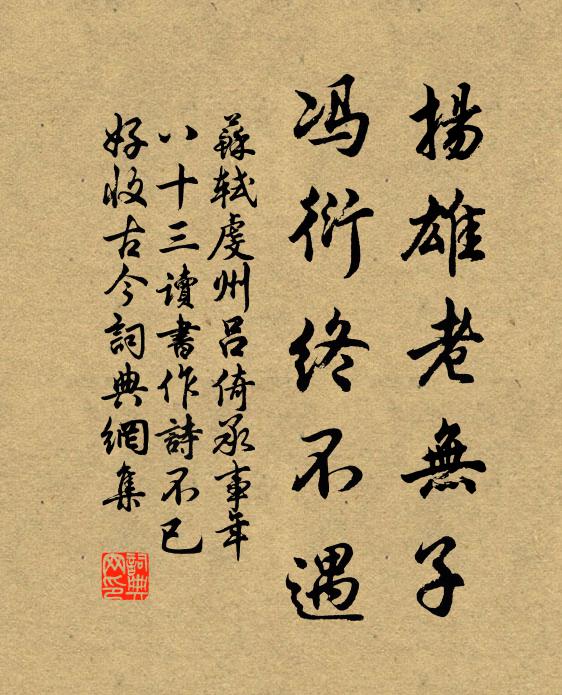 揚雄老無子
冯衍終不遇
蘇軾虔州吕倚承事年
八十三讀書作詩不已
好收古今詞典網集
詞典
网印